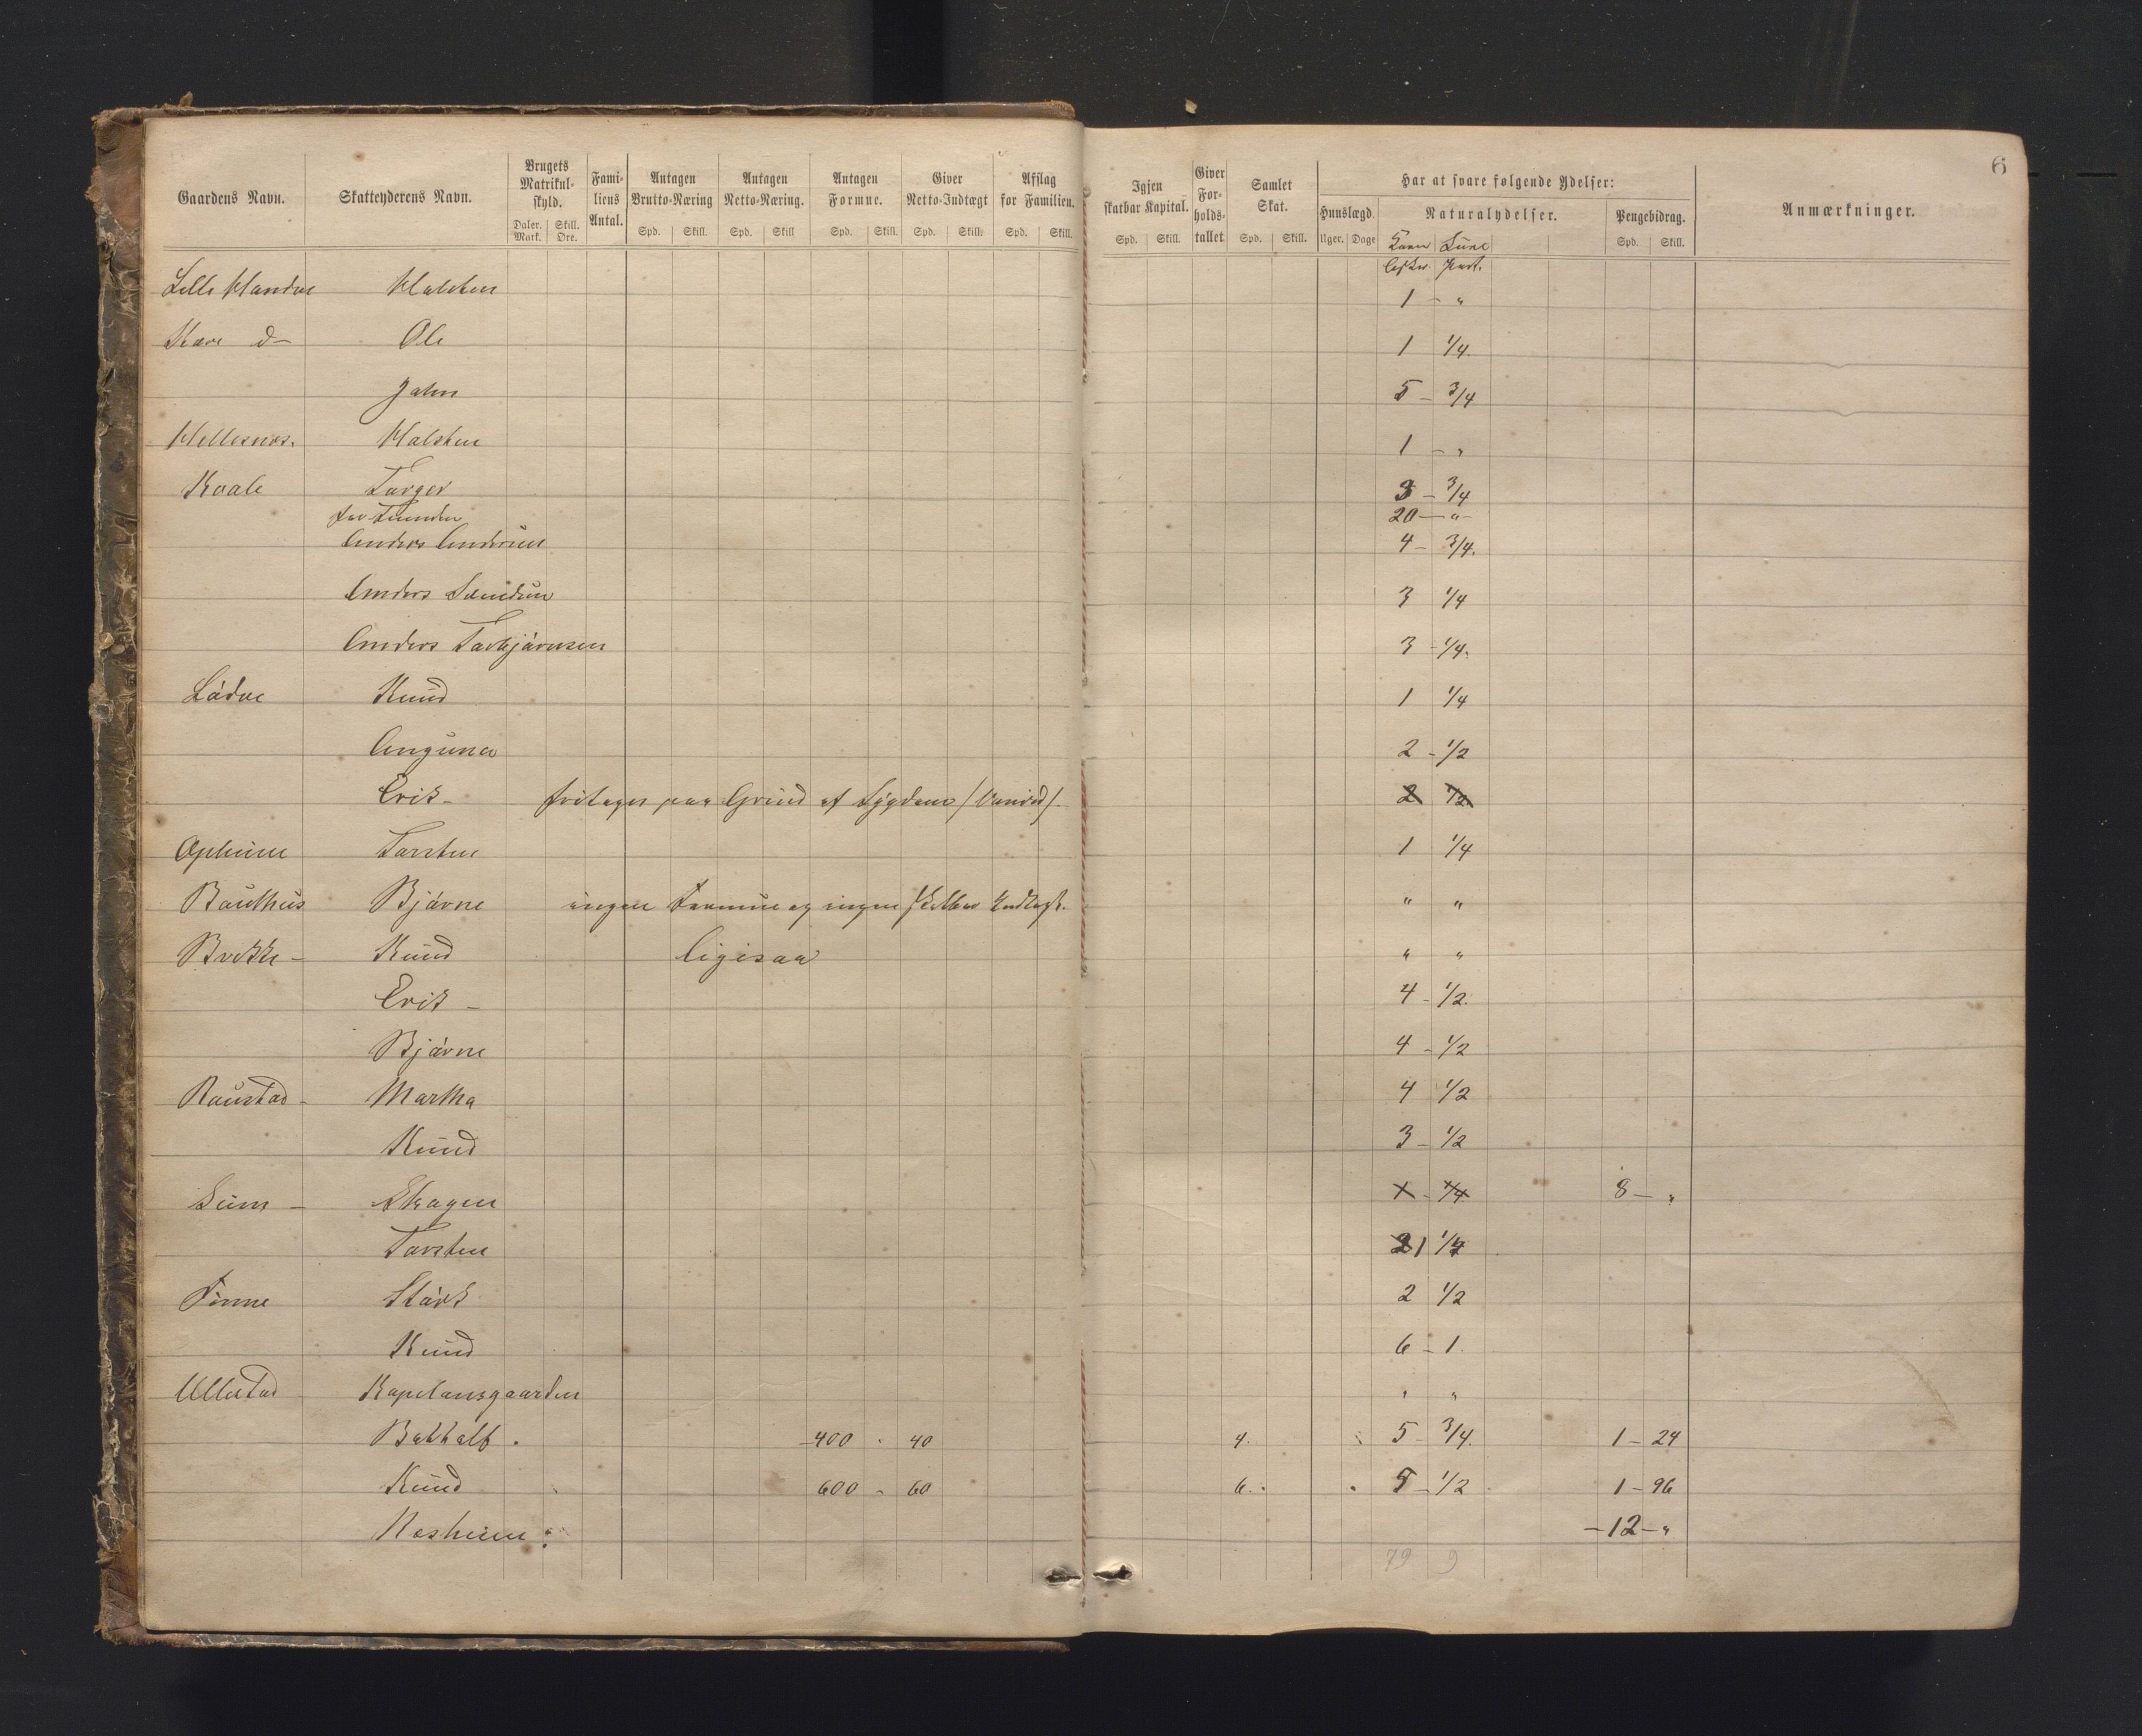 6
Gaardens Navn. Skatteyderens Navn. Brugets Matrikulskyld. Daler. Mark. Skill. Øre. Familiens Antal. Antagen Brutto-Næring Spd. Skill. Antagen Netto-Næring. Spd. Skill Antagen Formue. Spd. Skill. Giver Netto-Indtægt Spd. Skill. Afslag for Familien. Spd. Skill. Igjen skatbar Kapital. Spd. Skill. Giver Forholdstallet Samlet Skat. Spd. Skill. Har at svare følgende Ydelser: Huuslægd. Uger. Dage Naturalydelser. Pengebidrag. Spd. Skill. Anmærkninger.
Korn
Lille Halsten 1 - "
d- Ole 1 1/4
John 5 - 3/4
Hellesnæs. Halsten 1 - "
Kvale Torger 3 - 3/4
20 - " -
Anders Andersen 4 - 3/4.
Anders 3 1/4
Anders Torbjörnsen 3 - 1/4.
Lödve Knud 1 1/4
Anguna 2 - 1/2
Erik - fritages paa Grund af Sygdom / Vanvid /. 2 1/2
Opheim Torsten 1 1/4
Bauthus Bjørne ingen Formue og ingen Indtægt. " "
Brekke - Knud ligesaa " "
Erik - 4 - 1/2.
Bjørne 4 - 1/2
Raustad - Martha 4 1/2
Knud 3 - 1/2
- 1 - 1/4. 8 - "
Torsten 2 1 1/4
Finne Størk 2 1/2
Knud 6 - 1.
Ullestad Kapelansgaarden " "
400 " 40 4. 5 - 3/4. 1 - 24
Knud 600 - 60 6. 5 - 1/2 1 - 96
- 12 - "
79 9